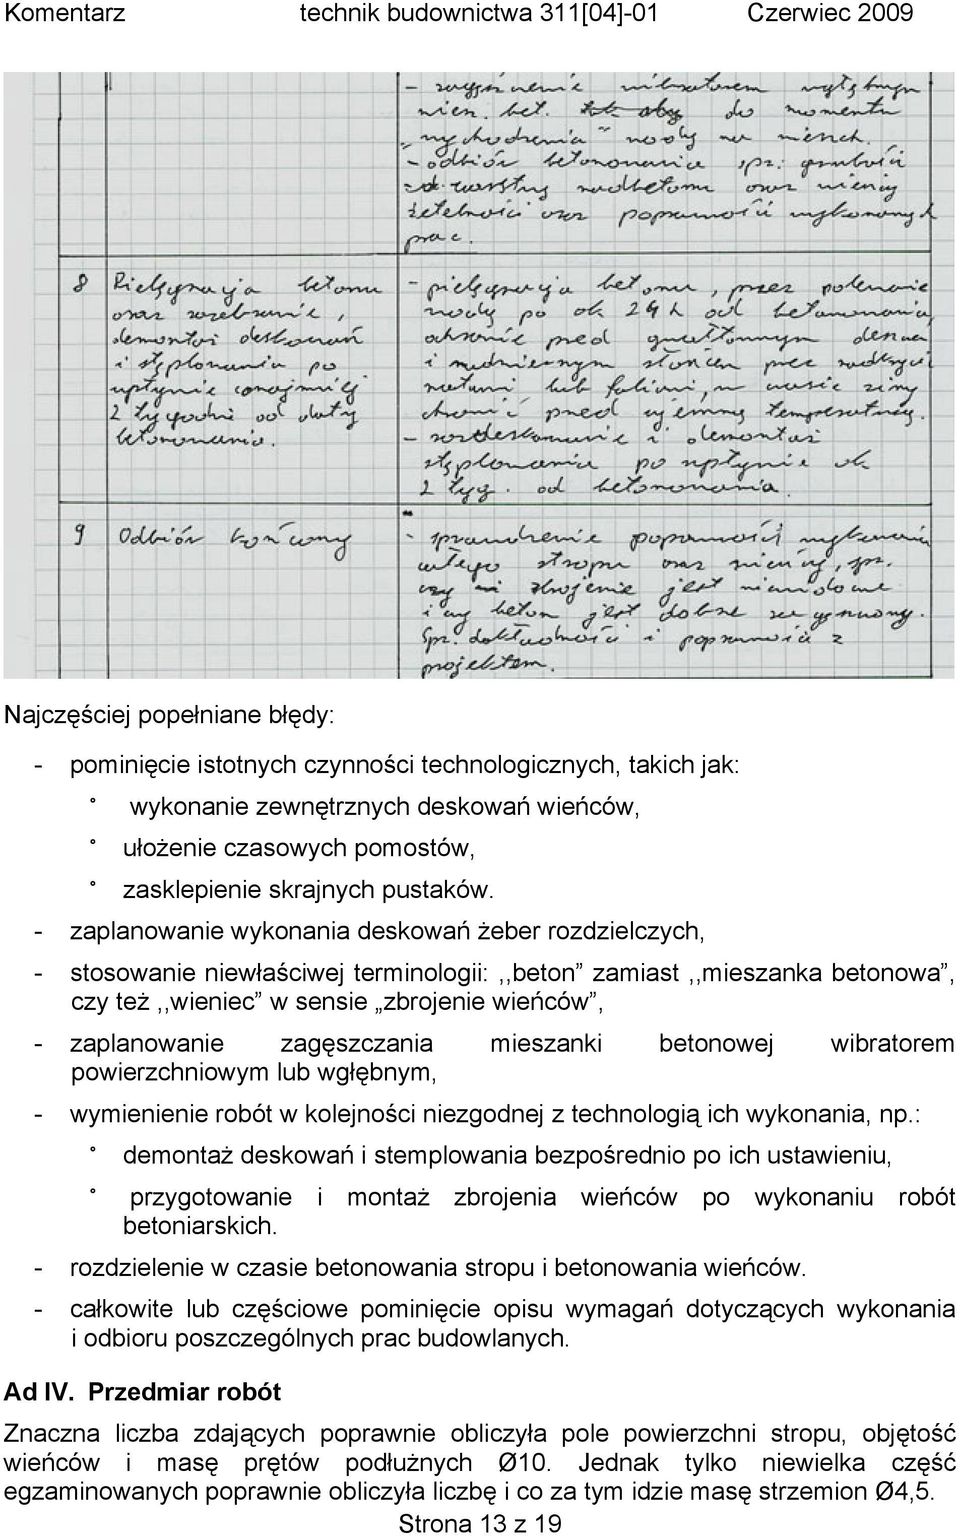 Komentarz technik budownictwa 311[04]-01 Czerwiec 2009
- zagęszczenie wibratorem wgłębnym
wien. bet. do momentu
„wychodzenia" wody na wierzch.
- odbiór betonowania spr. grubości
warstwy nadbetonu oraz wieńcy
żetelności oraz poprawności wykonanych
prac.
8 Pielęgnacja betonu
oraz rozebranie,
demontaż deskowań
i stęplowania po
upłynie conajmniej
2 tygodni od daty
betonowania.
- pielęgnacja betonu, przez polewanie
wody po ok 24 h od betonowania,
ochronie przed gwałtownym deszczem
i nadmiernym słońcem przez nadkryci
matami lub foliami, w czasie zimy
chronić przed ujemną temperaturą.
- rozdeskowanie i demontaż
stęplowania po upłynie ok
2 tyg. od betonowania.
9 Odbiór końcowy
- sprawdzenie poprawności wykonania
całego stropu oraz wieńcy, spr.
czy zbrojenie jest niewidoczne
i czy beton jest dobrze zagęszczony.
Spr. dokładności i poprawności z
projektem.
Najczęściej popełniane błędy:
- pominięcie istotnych czynności technologicznych, takich jak:
° wykonanie zewnętrznych deskowań wieńców,
° ułożenie czasowych pomostów,
° zasklepienie skrajnych pustaków.
- zaplanowanie wykonania deskowań żeber rozdzielczych,
- stosowanie niewłaściwej terminologii: ,,beton” zamiast ,,mieszanka betonowa”,
czy też ,,wieniec” w sensie „zbrojenie wieńców”,
- zaplanowanie zagęszczania mieszanki betonowej wibratorem
powierzchniowym lub wgłębnym,
- wymienienie robót w kolejności niezgodnej z technologią ich wykonania, np.:
° demontaż deskowań i stemplowania bezpośrednio po ich ustawieniu,
° przygotowanie i montaż zbrojenia wieńców po wykonaniu robót
betoniarskich.
- rozdzielenie w czasie betonowania stropu i betonowania wieńców.
- całkowite lub częściowe pominięcie opisu wymagań dotyczących wykonania
i odbioru poszczególnych prac budowlanych.
Ad IV. Przedmiar robót
Znaczna liczba zdających poprawnie obliczyła pole powierzchni stropu, objętość
wieńców i masę prętów podłużnych Ø10. Jednak tylko niewielka część
egzaminowanych poprawnie obliczyła liczbę i co za tym idzie masę strzemion Ø4,5.
Strona 13 z 19